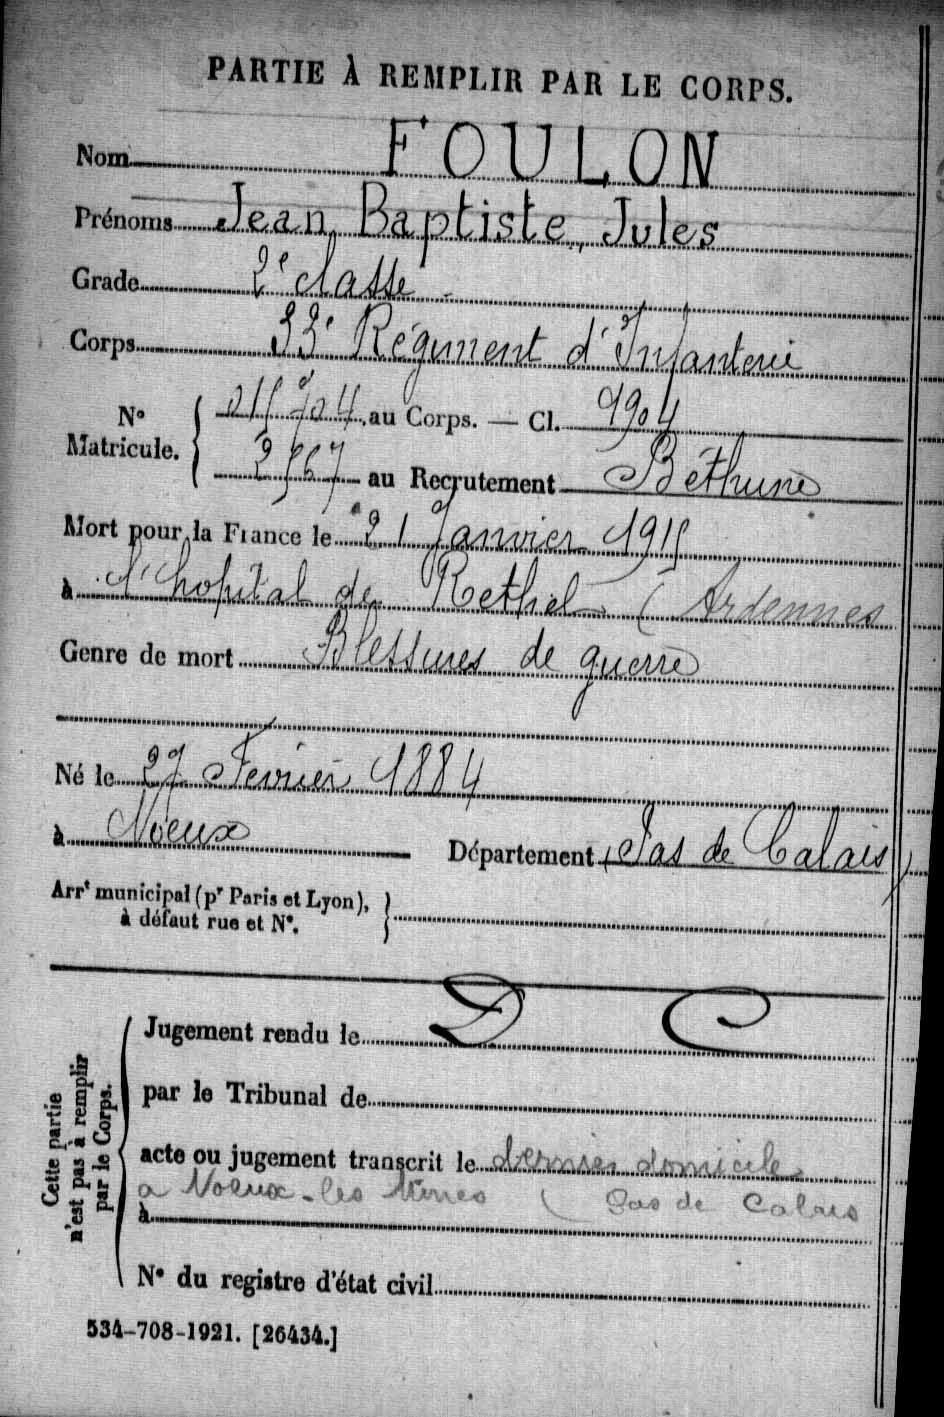 PARTIE À REMPLIR PAR LE CORPS.
Nom FOULON
Prénoms Jean Baptiste, Jules
Grade 2e classe
Corps 33e Régiment d'Infanterie
No Matricule. { au Corps. — Cl. 1904
2567 au Recrutement Béthune
Mort pour la France le 21 Janvier 1915
à l'hopital de Rethel (Ardennes
Genre de mort Blessures de guerre
Né le 27 Fevrier 1884
à Noeux Département (Pas de Calais)
Arrt municipal (pr Paris et Lyon), à défaut rue et No. }
Cette partie n'est pas à remplir par le Corps.
Jugement rendu le D C
par le Tribunal de
acte ou jugement transcrit le dernier domicile
a Noeux-les Mines (Pas de Calais
à
No du registre d'état civil
534-708-1921. [26434.]